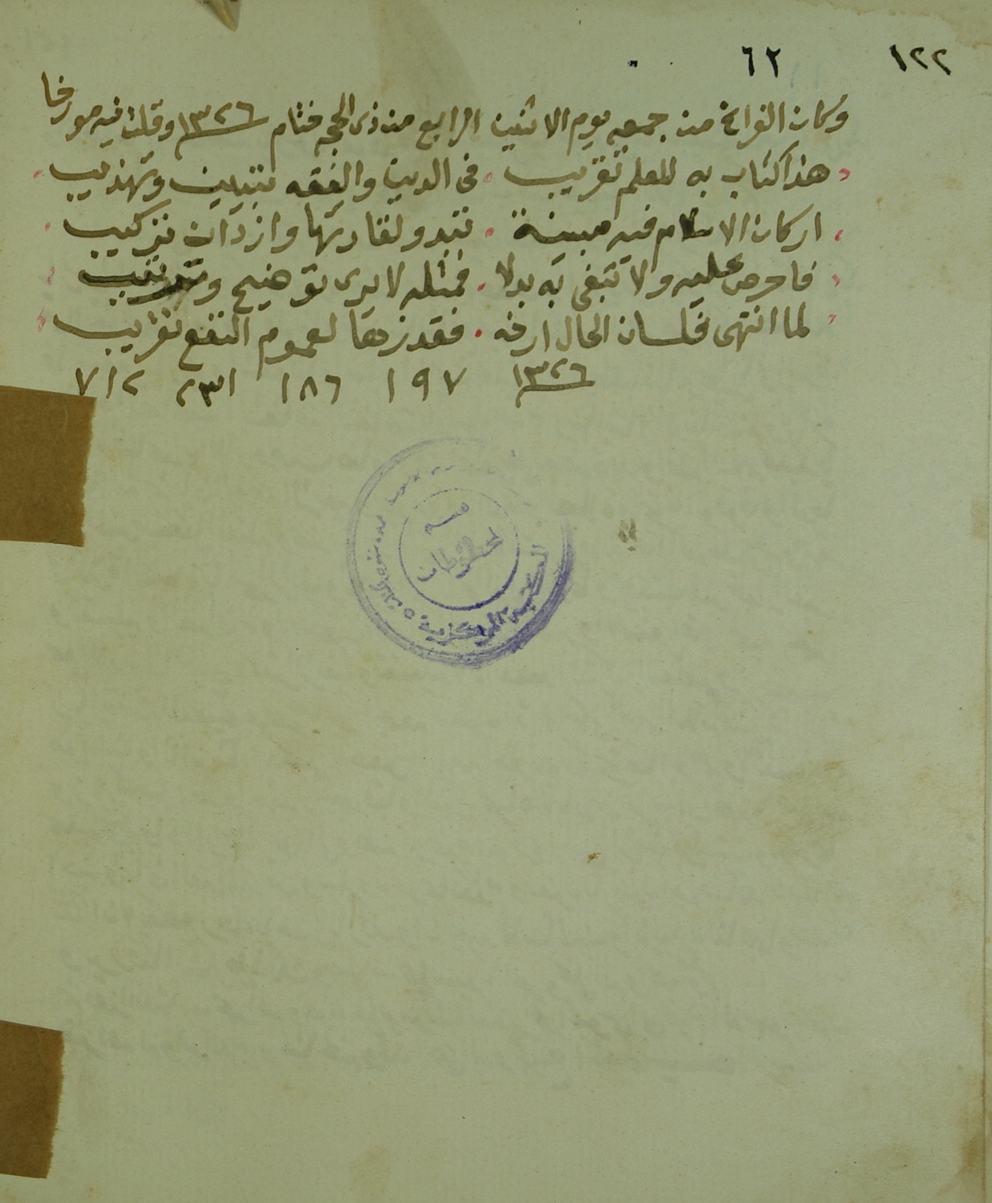 ١٢٢ ٦٢
وكان الفراغ من جمعه يوم الاثنين الرابع من ذى الحجه ختام ١٣٢٦ وقلت فيه مورخا
هذا كتاب به للعلم تقريب . فى الدين والفقه تبيين وتهذيب
اركان الاسلام فيه مبينة . تبدو لقاريها وازدان تركيب
فاحرص عليه ولا تبغى به بدلا . فمثله لا يرى توضيح وترتيب
لما انتهى فلسان الحال ارخه . فقد زها لعموم النفع تقريب
١٣٢٦ ١٩٧ ١٨٦ ٢٣١ ٧١٢
قسم
المخطوطات
المكتبة المركزية